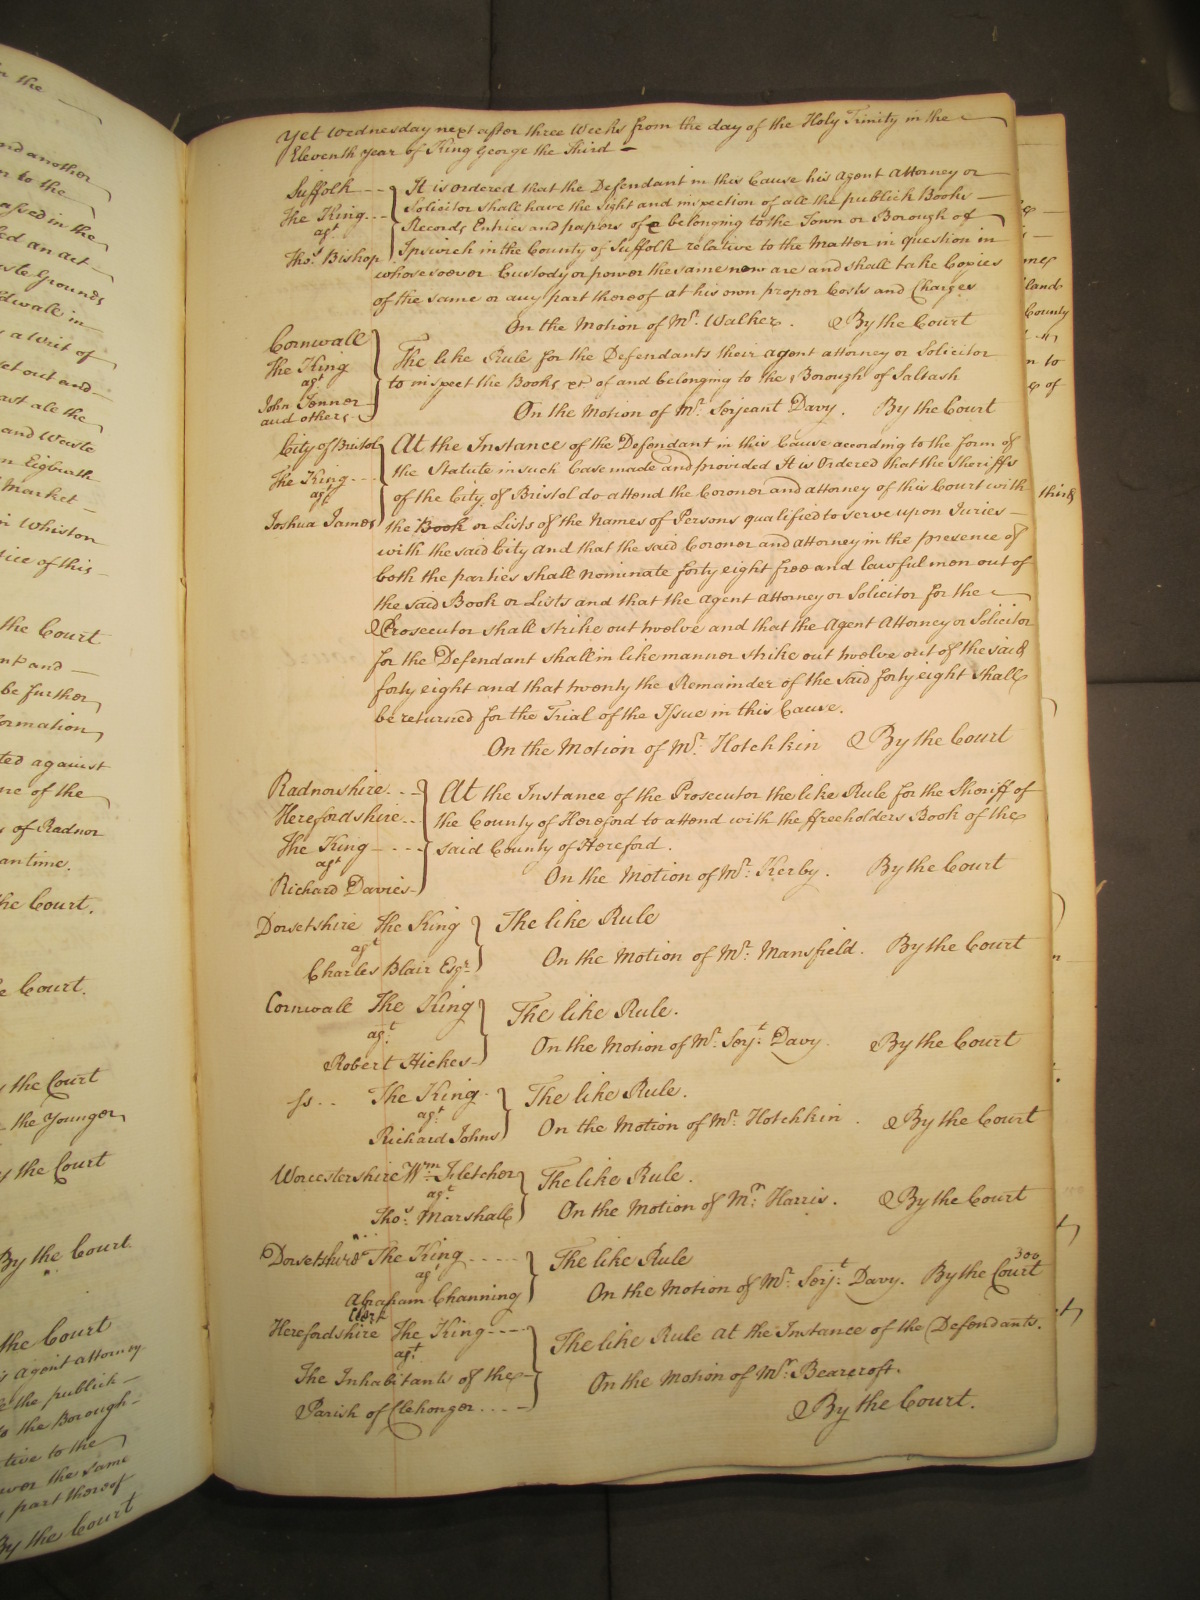 Yet Wednesday next after three Weeks from the day of the Holy Trinity in the
Eleventh year of King George the Third
Suffolk
The King
agt
Thos. Bishop
It is ordered that the Defendant in this Cause his Agent Attorney or
Solicitor shall have the sight and inspection of all the publick Books
Records Entries and papers of belonging to the Town or Borough of
Ipswich in the County of Suffolk relative to the Matter in question in
whosesoever Custody or power the same now are and shall take Copies
of the same or any part thereof at his own proper Costs and Charges
On the Motion of Mr. Walker. By the Court
Cornwall
The King
agt
John Jenner
and others
The like Rule for the Defendants their agent attorney or Solicitor
to inspect the Books &c of and belonging to the Borough of Saltash
On the Motion of Mr. Serjeant Davy. By the Court
City of Bristol
The King
agt
Joshua James
At the Instance of the Defendant in this Cause according to the form of
the Statute in such Case made and provided It is Ordered that the Sheriffs
of the City of Bristol do attend the Coroner and attorney of this Court with
the Book or Lists of the Names of Persons qualified to serve upon Juries
with the said City and that the said Coroner and attorney in the presence of
both the parties shall nominate forty eight free and lawful men out of
the said Book or Lists and that the Agent Attorney or Solicitor for the
Prosecutor shall strike out twelve and that the Agent Attorney or Solicitor
for the Defendant shall in like manner strike out twelve out of the said
forty eight and that twenty the Remainder of the said forty eight shall
be returned for the Trial of the Issue in this Cause.
On the Motion of Mr. Hotchkin By the Court
Radnorshire
Herefordshire
The King
agt
Richard Davies
At the Instance of the Prosecutor the like Rule for the Sheriff of
the County of Hereford to attend with the ffreeholders Book of the
said County of Hereford.
On the Motion of Mr. Kerby. By the Court
Dorsetshire The King
agt
Charles Blair Esqr.
The like Rule
On the Motion of Mr. Mansfield. By the Court
Cornwall The King
agt.
Robert Hickes
The like Rule.
On the Motion of Mr. Serjt. Davy. By the Court
ss.. The King
agt.
Richard Johns
The like Rule.
On the Motion of Mr. Hotchkin. By the Court
Worcestershire Wm. Fletcher
agt.
Thos. Marshall
The like Rule.
On the Motion of Mr. Harris. By the Court
Dorsetshire The King
agt
Abraham Channing
Clerk
The like Rule
300
On the Motion of Mr. Serjt. Davy. By the Court
Herefordshire The King
agt.
The Inhabitants of the
Parish of Clehonger
The like Rule at the Instance of the Defendants.
On the Motion of Mr. Bearcroft.
By the Court.